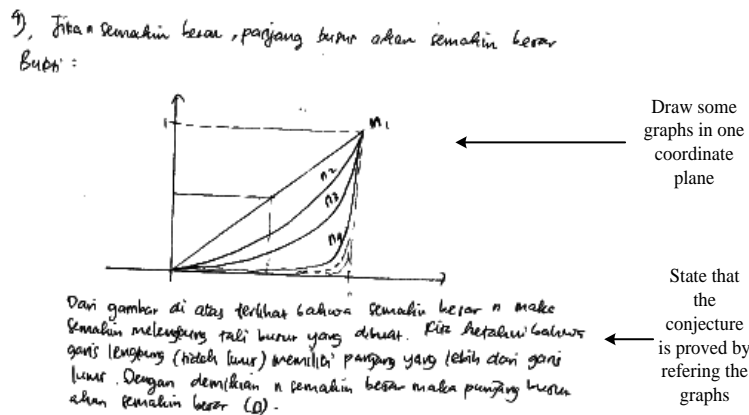 9), Jika n semakin besar, panjang busur akan semakin besar
Bukti :
1
n1
n2
n3
n4
Draw some
graphs in one
coordinate
plane
Dari gambar di atas terlihat bahwa semakin besar n maka
semakin melengkung tali busur yang dibuat. Kita ketahui bahwa
garis lengkung (tidak lurus) memiliki panjang yang lebih dari garis
lurus. Dengan demikian n semakin besar maka panjang busur
akan semakin besar
State that
the
conjecture
is proved by
refering the
graphs